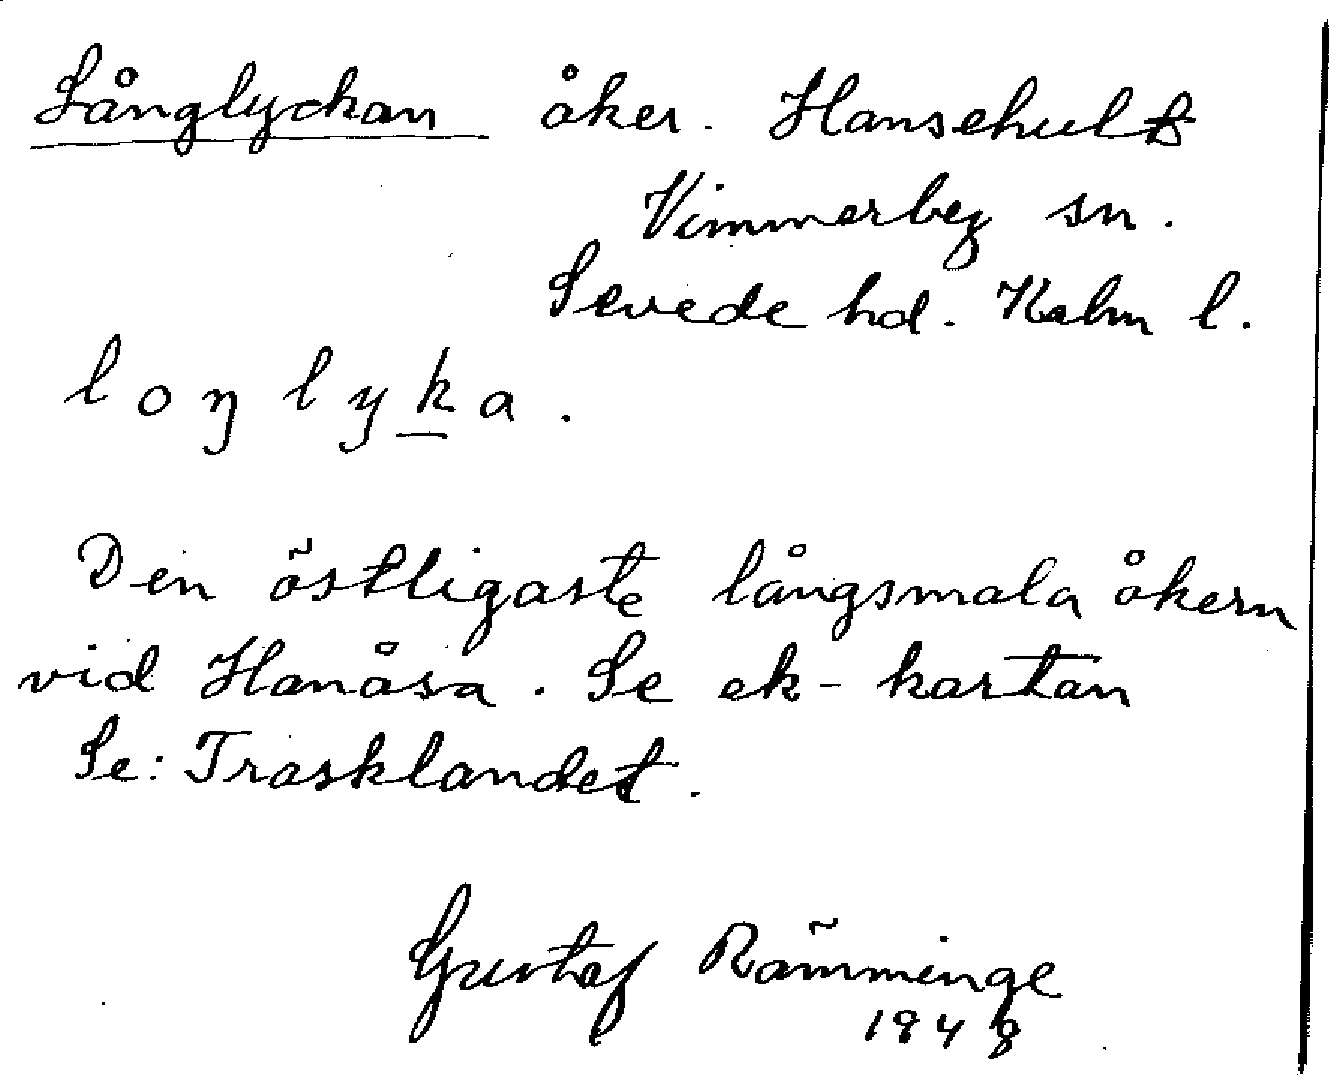 Långlyckan åker. Hansehult
Vimmerby sn.
Sevede hd. Kalm l.
l o ŋ l y k a .
Den östligaste långsmala åkern
vid Hanåsa. Se ek-kartan
Se: Trasklandet.
Gustaf Rämminge
1948